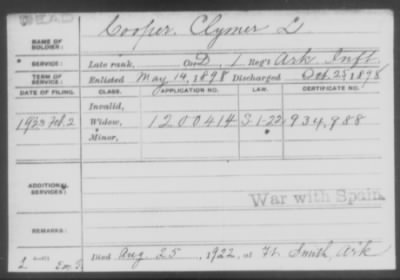 DEAD
NAME OF SOLDIER: Cooper, Clymer L.
SERVICE: Late rank, Co. D, 1 Reg't Ark Inft.
TERM OF SERVICE: Enlisted May 14, 1898 Discharged Oct. 25, 1898
DATE OF FILING. CLASS. APPLICATION NO. LAW. CERTIFICATE NO.
Invalid,
1923 Feb. 2 Widow, 1200414 S1-22 934,988
Minor,
ADDITIONAL SERVICES:
War with Spain.
REMARKS:
Died Aug 25, 1922, at Ft. Smith, Ark